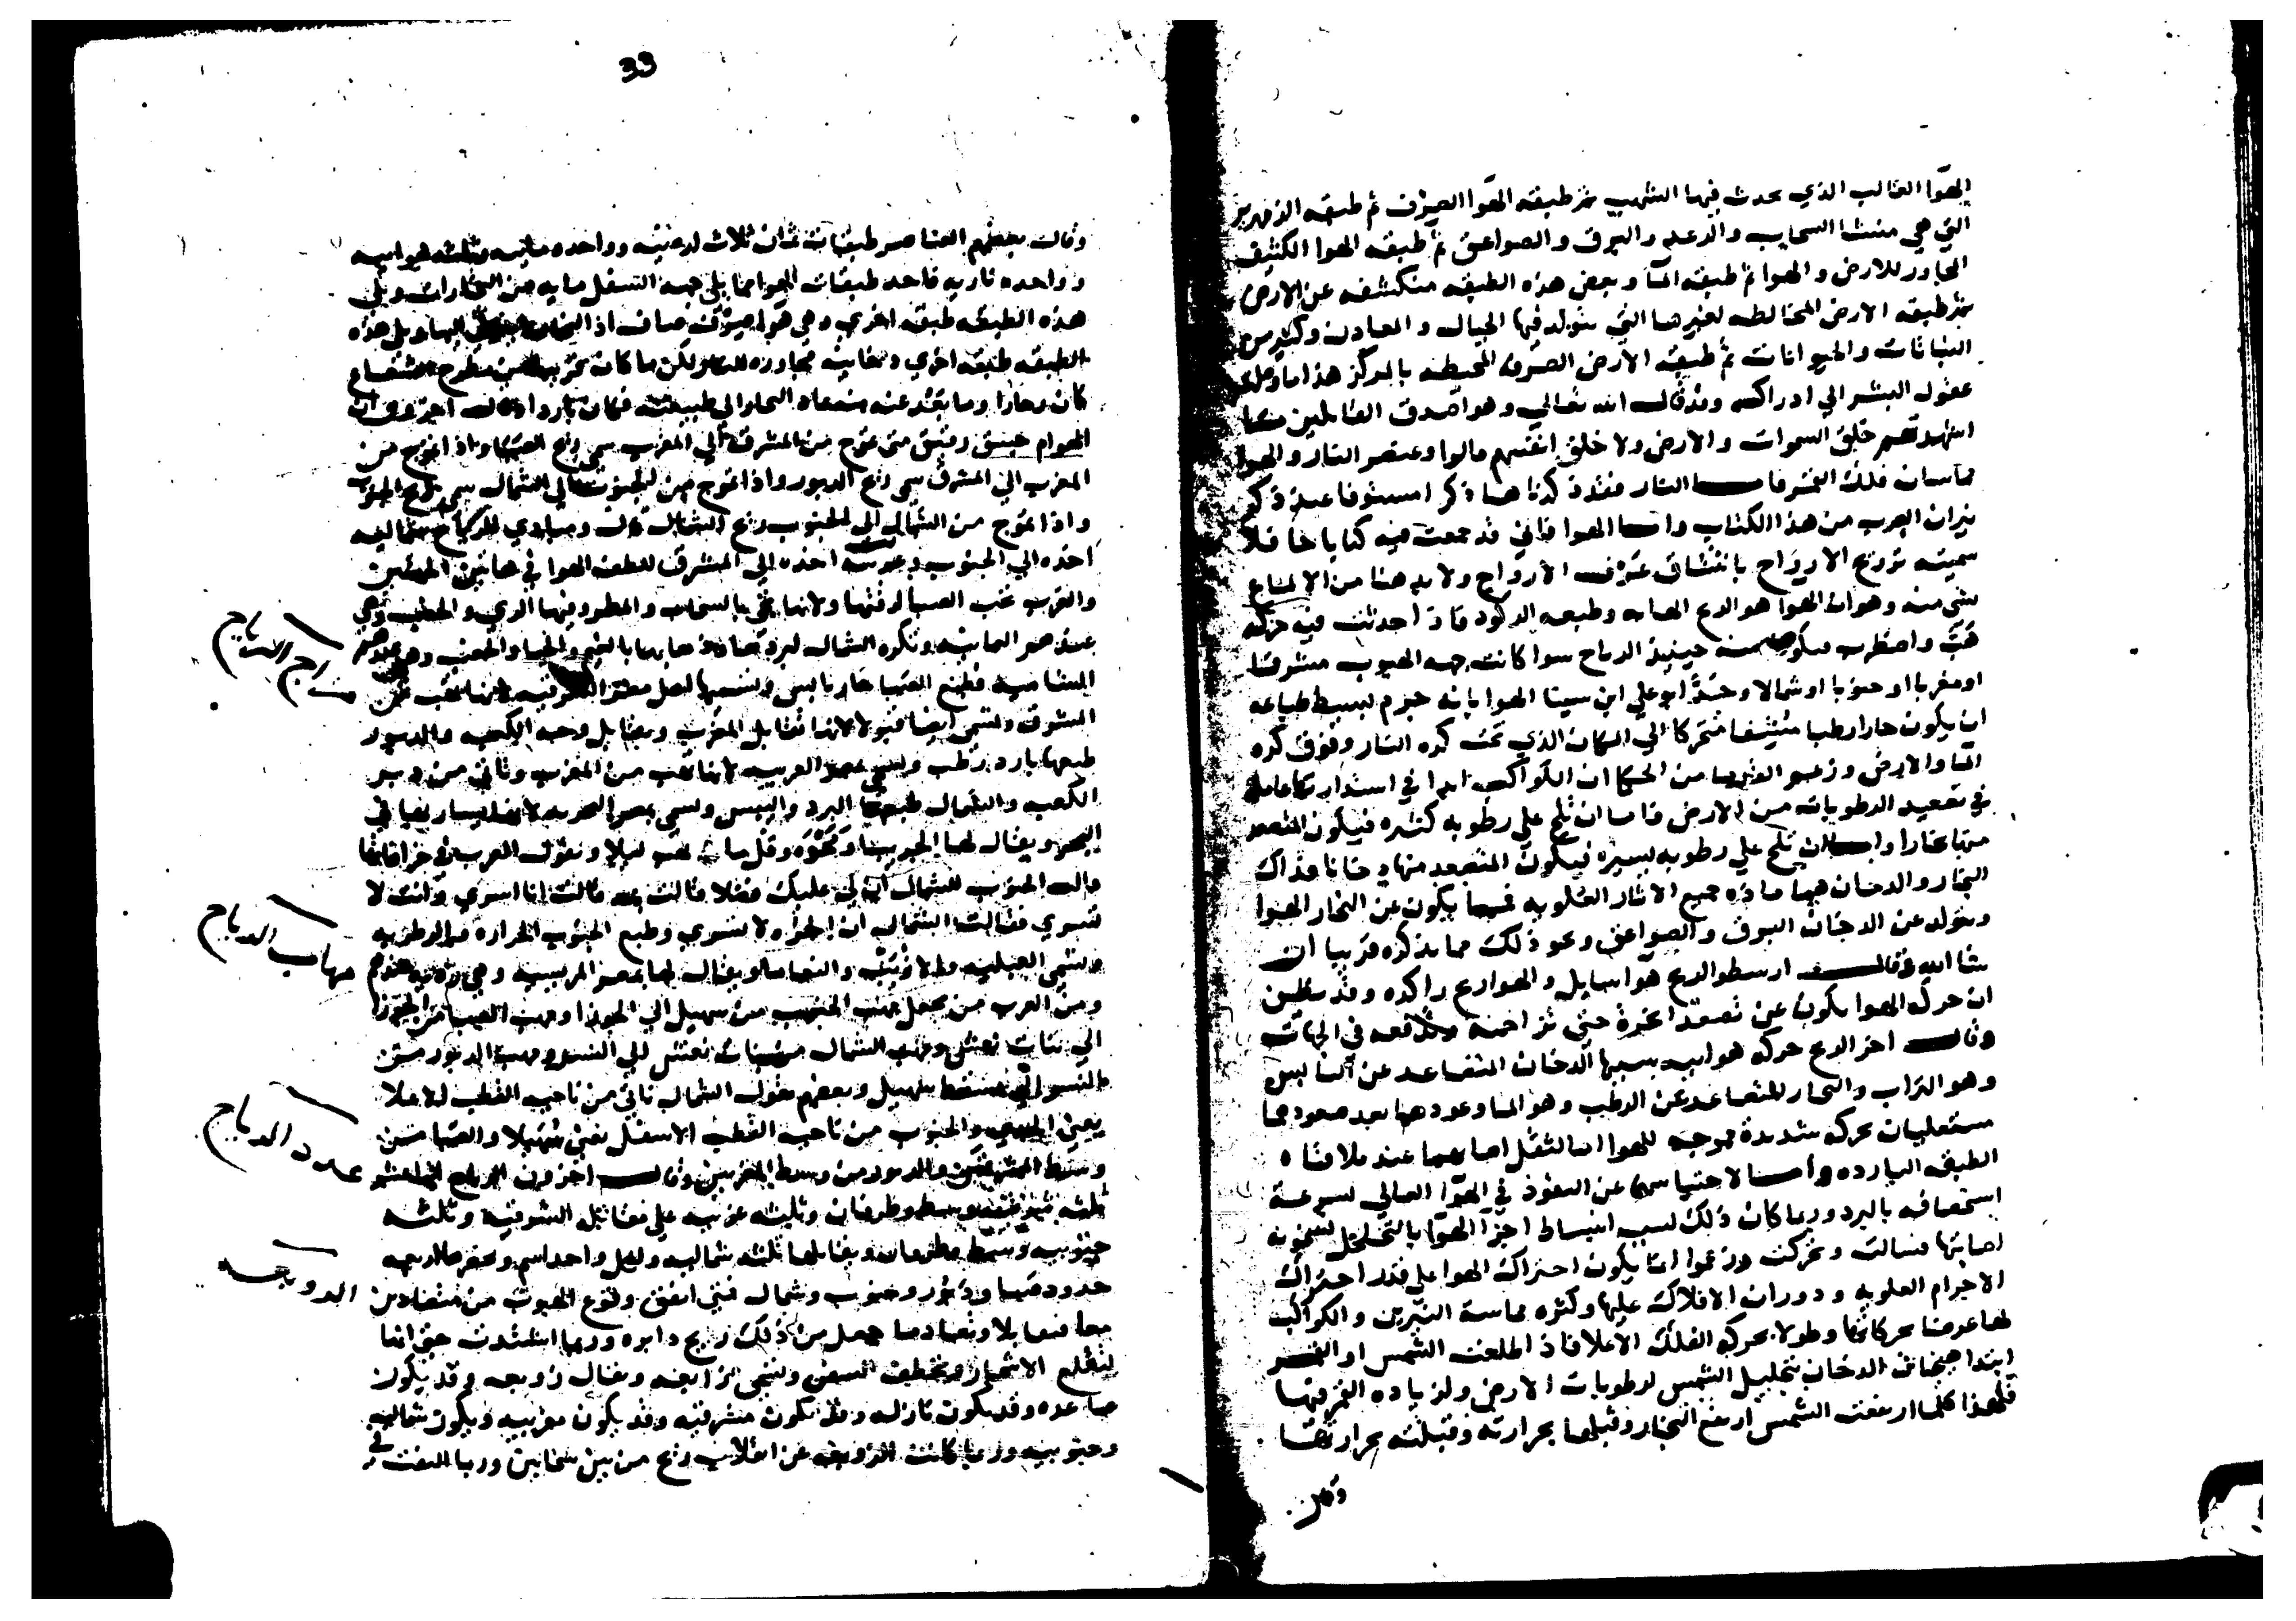 الهوا الغالب الذي يحدث فيها الشهب ثم طبقه الهوا الصرف ثم طبقه الزمهرير
التي هي منشا السحاب والرعد والبرق والصواعق ثم طبقه الهوا الكثيف
المجاور للارض والهوا ثم طبقه الما وبعض هذه الطبقه منكشفه عن الارض
ثم طبقه الارض المخالطه لغيرها التي يتولد فيها الجبال والمعادن وكثير من
النباتات والحيوانات ثم طبقه الارض الصرف المحيطه بالمركز هذا ما وصل
عقول البشر الي ادراكه وقد قال الله تعالي وهو اصدق القايلين ما
اشهدتهم خلق السموات والارض ولا خلق انفسهم قالوا وعنصر النار والهوا
مماسان فلك القمر فاما النار فقد ذكرناها ذكرا مستوفا عند ذكر
نيران العرب من هذا الكتاب واما الهوا فاني قد جمعت فيه كتابا حافلا
سميته ترويح الارواح بانتشاق عرف الارواح ولا بد هنا من الالماع
بشي منه وهو ان الهوا هو الريح وطبعه الركود فاذا حدثت فيه حركه
هب واضطرب حينيذ الرياح سوا كانت جهه الهبوب مشرقا
او مغربا او جنوبا او شمالا وحد ابو علي ابن سينا الهوا بانه جرم بسيط طباعه
ان يكون حارا رطبا متحركا الي المكان الذي تحت كره النار وفوق كره
الما والارض وزعم القدما من الحكما ان الكواكب ابدا في استدارتها عامله
في تصعيد الرطوبات من الارض فاما ان تلح علي رطوبه كثيره فيكون المتصعد
منها بخارا واما ان تلح علي رطوبه يسيره فيكون المتصعد منها دخانا فذاك
البخار والدخان هما ماده جميع الاثار العلويه فيما يكون عن البخار الهوا
ويتولد عن الدخان البروق والصواعق ونحو ذلك مما يذكره قريبا ان
شا الله وقال ارسطو الريح هوا سايل والهوا ريح راكده وقد يظن
ان حركه الهوا يكون عن تصعد ابخرة حتي تزاحمه وتدافعه في الجهات
وقال اخر الريح حركه هواييه سببها الدخان المتصاعد عن اليابس
وهو التراب والبخار المتصاعد عن الرطب وهو الما وعودهما بعد صعودهما
مستعليان بحركه شديدة مموجه للهوا اما لثقل اصابهما عند ملاقاه
الطبقه البارده واما لاحتباسهما عن النفوذ في الهوا العالي لسرعة
استحصافه بالبرد وربما كان ذلك لسبب انبساط اجزا الهوا بالتخلخل لسخونه
اصابتها فسالت وتحركت وزعموا انما يكون احتراك الهوا علي قدر احتراك
الاجرام العلويه ودوران الافلاك عليها وكثره مماسة النيرين والكواكب
لها عرضا بحركاتها وطولا بحركه الفلك الاعلا فاذا طلعت الشمس او القمر
ابتدا هيجان الدخان بتحليل الشمس لرطوبات الارض ولزياده القمر فيها
فلهذا كلما ارتفعت الشمس ارتفع البخار وقبلها بحرارته وقبلته بحرارتها
ومن
33
وقال بعضهم العناصر طبقات ثمان ثلاث ارضيه وواحده ماييه وثلاثه هواييه
وواحده ناريه فاحد طبقات الهوا مما يلي جهه السفل ما به من البخارات ويلي
هذه الطبقه طبقه اخري وهي هوا صرف صاف اذ البخار اليها ويلي هذه
الطبقه طبقه اخري دخانيه مجاوره للنار ولكن ما كان قريبا من مطرح الشعاع
كان حارا وما بعد عنه منه عاد البخار الي طبيعته فكان باردا قال اخرون ان
الهوا جسم رقيق متي تموج من المشرق الي المغرب سمي ريح الصبا واذا تموج من
المغرب الي المشرق سمي ريح الدبور واذا تموج من الجنوب الي الشمال سمي ريح الجنوب
واذا تموج من الشمال الي الجنوب ريح الشمال قال ومبادي الرياح شماليه
اخذه الي الجنوب وغربيه اخذه الي المشرق للطف الهوا في هاتين الجهتين
والعرب تحب الصبا لرقتها ولانها تجي بالسحاب والمطر وفيها الري والخصب وهي
عندهم اليمانيه وتكره الشمال لبردها وذهابها بالغيم والحيا والخصب وهي عندهم
الشاميه فطبع الصبا حار يابس ويسميها اهل مصر الشرقيه لانها تهب من
المشرق وتسمي ايضا قبولا لانها تقابل المغرب ويقابل وجه الكعبه والدبور
طبعها بارد رطب وتسمي بمصر الغربيه لانها تهب من المغرب وتاتي من دبر
الكعبه والشمال طبعها البرد واليبس وتسمي بمصر البحريه لانها يسار بها في
البحر ويقال لها الجربيا ومحوه وقل ما تهب ليلا وتقول العرب في خرافاتها
قالت الجنوب للشمال ان لي عليك فضلا قالت لمه قالت انا اسري وانت لا
تسري فقالت الشمال ان الحره لا تسري وطبع الجنوب الحراره والرطوبه
وتسمي القبليه والازيب والنعاما ويقال لها بمصر المريسيه وهي رديه عندهم
ومن العرب من يجعل مهب الجنوب من سهيل الي الجوزا ومهب الصبا من الجوزا
الي بنات نعش ومهب الشمال من بنات نعش الي النسر ومهب الدبور من
النسر الي مسقط سهيل وبعضهم يقول الشمال تاتي من ناحيه القطب الاعلا
يعني الجدي والجنوب من ناحيه القطب الاسفل يعني سهيلا والصبا من
وسط المشرقين والدبور من وسط المغربين وقال اخرون الرياح اثناعشر
ثلثه شرقيه وسط وطرفان وثلثه غربيه علي مقابله الشرقيه وثلثه
جنوبيه وسط وطرفان ويقابلها ثلثه شماليه ولكل واحد اسم ويحصرها اربعه
حدود صبا ودبور وجنوب وشمال فمتي اتفق وقوع الهبوب من متضادين
معا تقابلا وتصادما جعل من ذلك ريح دايره وربما اشتدت حتي انها
لتقلع الاشجار وتخطف السفن وتسمي زوابعه ويقال زوبعه وقد يكون
صاعده وقد يكون نازله وقد يكون مشرقيه وقد يكون مغربيه ويكون شماليه
وجنوبيه وربما كانت الزوبعه عن انقلاب ريح من بين سحابتين وربما التفت في
مزاج الرياح
مهاب الرياح
عدد الرياح
الزوبعه